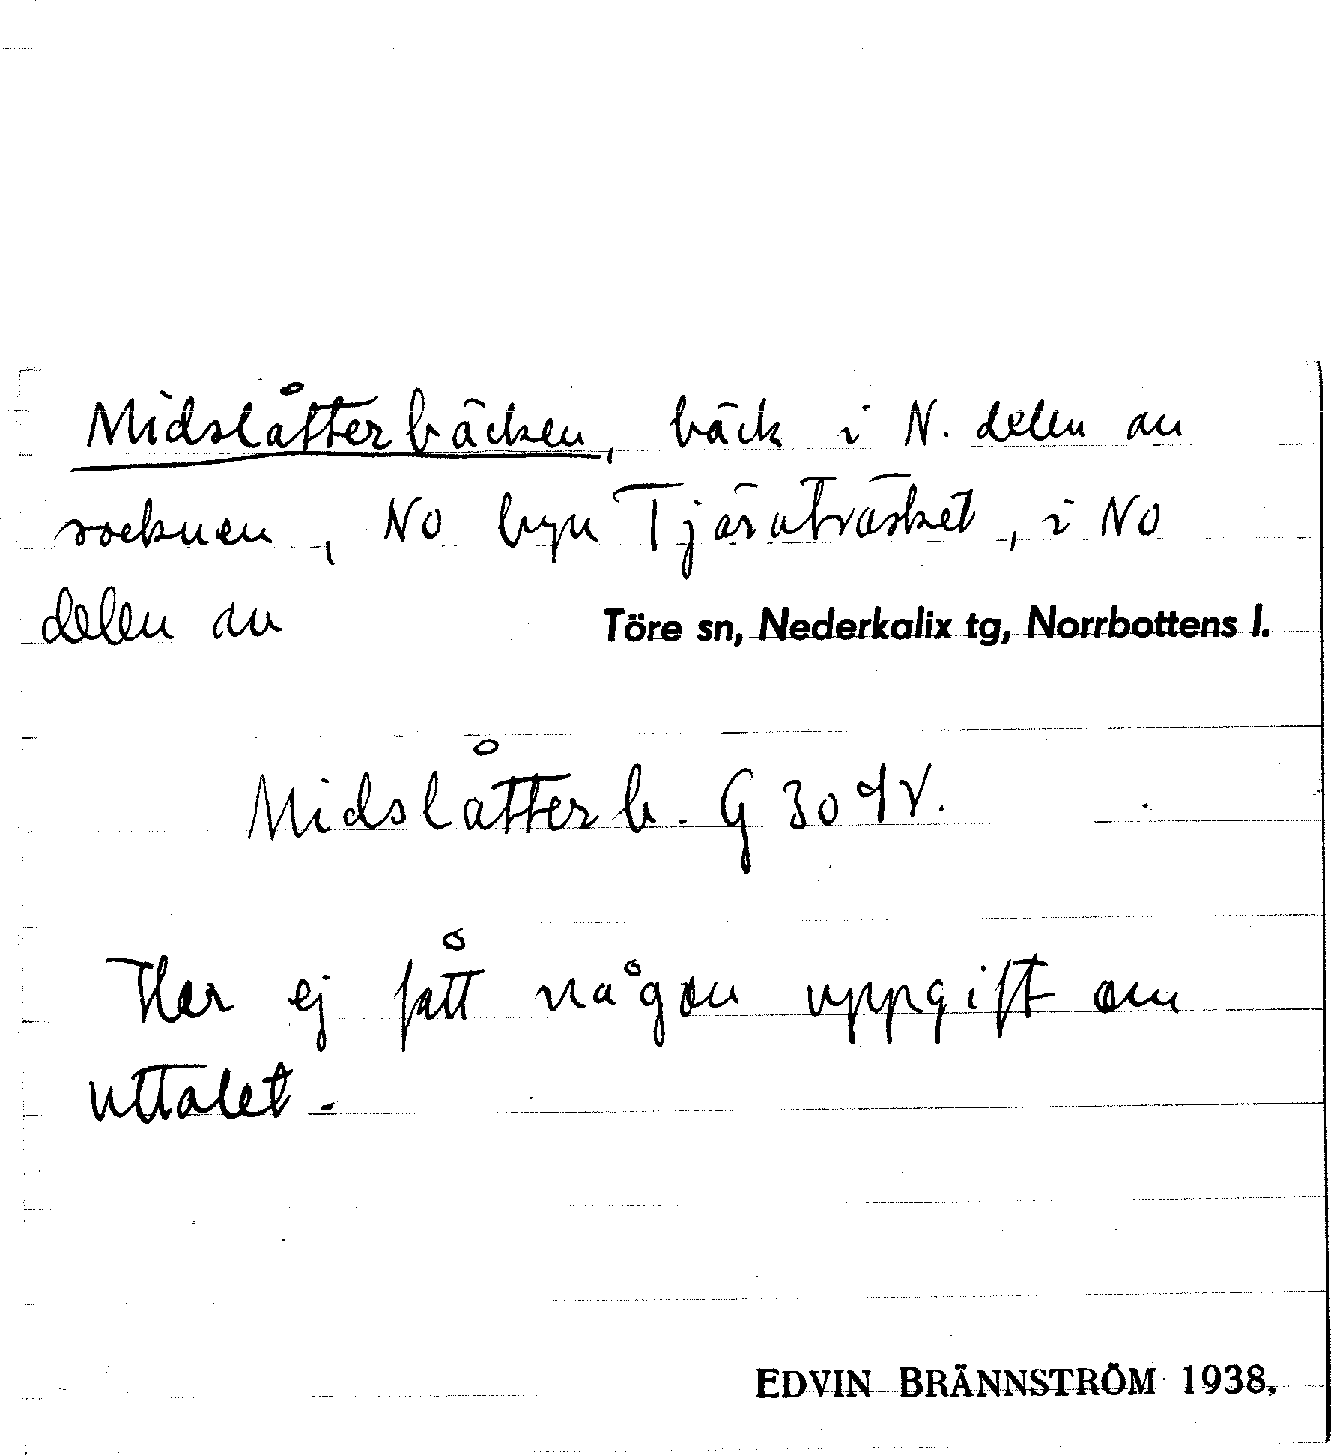 Midslåtterbäcken, bäck i N. delen av
socknen, NO byn Tjäruträsket, i NO
delen av Töre sn, Nederkalix tg, Norrbottens l.
Midslåtterb. G 30
Har ej fått någon uppgift om
uttalet.
EDVIN BRÄNNSTRÖM 1938.